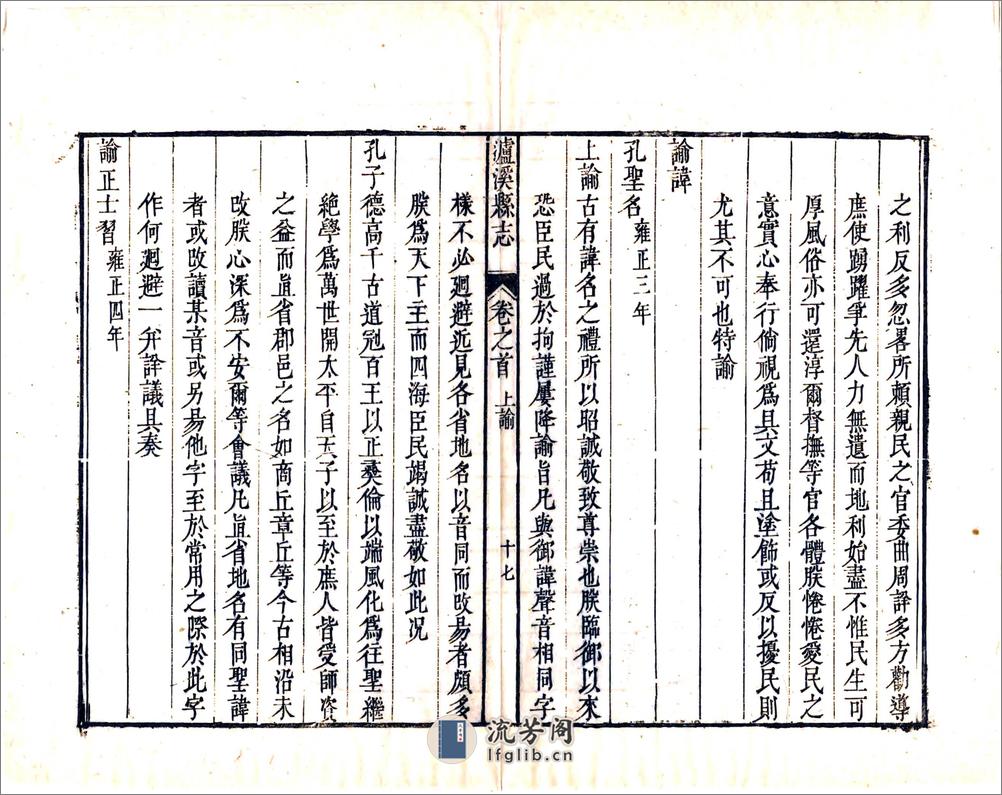 之利反多忽畧所賴親民之官委曲周詳多方勸導
庶使踴躍爭先人力無遺而地利始盡不惟民生可
厚風俗亦可還淳爾督撫等官各體朕惓惓愛民之
意實心奉行倘視爲具文苟且塗飾或反以擾民則
尤其不可也特諭
諭諱
孔聖名雍正三年
上諭古有諱名之禮所以昭誠敬致尊崇也朕臨御以來
恐臣民過於拘謹屢降諭旨凡與御諱聲音相同字
瀘溪縣志 卷之首 上諭 十七
樣不必廻避近見各省地名以音同而改易者頗多
朕爲天下主而四海臣民竭誠盡敬如此况
孔子德高千古道冠百王以正彝倫以端風化爲往聖繼
絶學爲萬世開太平自天子以至於庶人皆受師資
之益而直省郡邑之名如商丘章丘等今古相沿未
改朕心深爲不安爾等會議凡直省地名有同聖諱
者或改讀某音或另易他字至於常用之際於此字
作何廻避一弁詳議具奏
諭正士習雍正四年
流芳阁
lfglib.cn